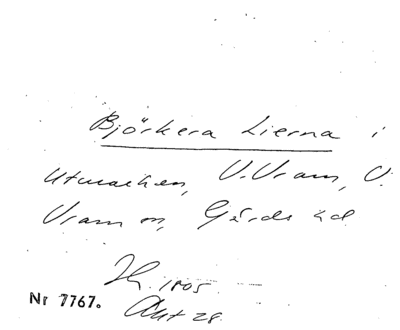 Björkera Lierna i
utmarken, V. Vram, V.
Vram sn, Gärds hd.
Lk. 1805
Nr 7767.
Akt 28